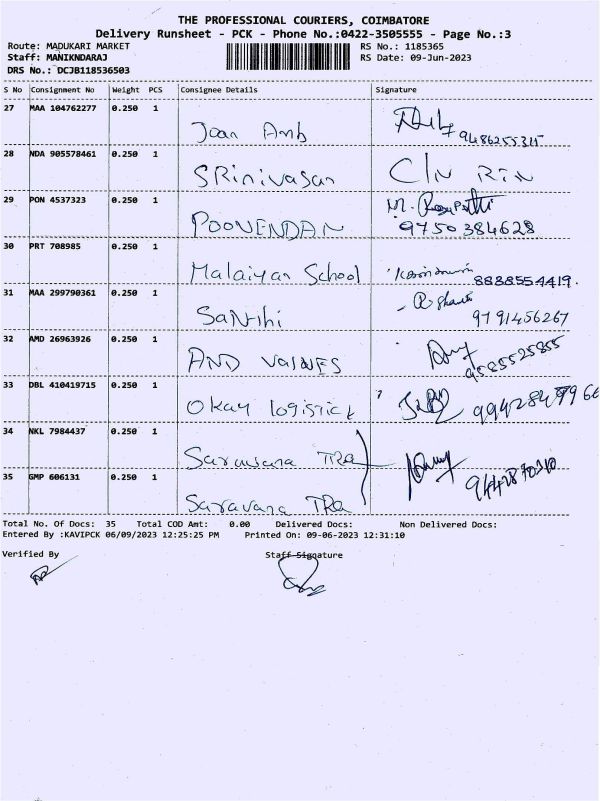 THE PROFESSIONAL COURIERS, COIMBATORE
Delivery Runsheet - PCK - Phone No.:0422-3505555 - Page No.:3
Route: MADUKARI MARKET RS No.: 1185365
Staff: MANIKNDARAJ RS Date: 09-Jun-2023
DRS No.: DCJB118536503
S No Consignment No Weight PCS Consignee Details Signature
27 MAA 104762277 0.250 1
Joan Amb 9486255315
28 NDA 905578461 0.250 1
SRinivasan C/N RIN
29 PON 4537323 0.250 1
POOVENDAN 9750384628
30 PRT 708985 0.250 1
Malaiyan School 8838554419
31 MAA 299790361 0.250 1
Santhi 9791456267
32 AMD 26963926 0.250 1
AND VALVES 9585525855
33 DBL 410419715 0.250 1
Okay logistick 9942847966
34 NKL 7984437 0.250 1
Saravana TRa
35 GMP 606131 0.250 1
Saravana TRa
Total No. Of Docs: 35 Total COD Amt: 0.00 Delivered Docs: Non Delivered Docs:
Entered By :KAVIPCK 06/09/2023 12:25:25 PM Printed On: 09-06-2023 12:31:10
Verified By Staff Signature